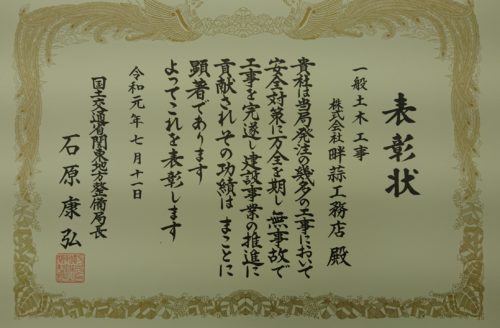 表彰状
一般土木工事
株式会社畔蒜工務店 殿
貴社は当局発注の幾多の工事において
安全対策に万全を期し無事故で
工事を完遂し建設事業の推進に
貢献されその功績は まことに
顕著であります
よってこれを表彰します
令和元年七月十一日
国土交通省関東地方整備局長
石原康弘